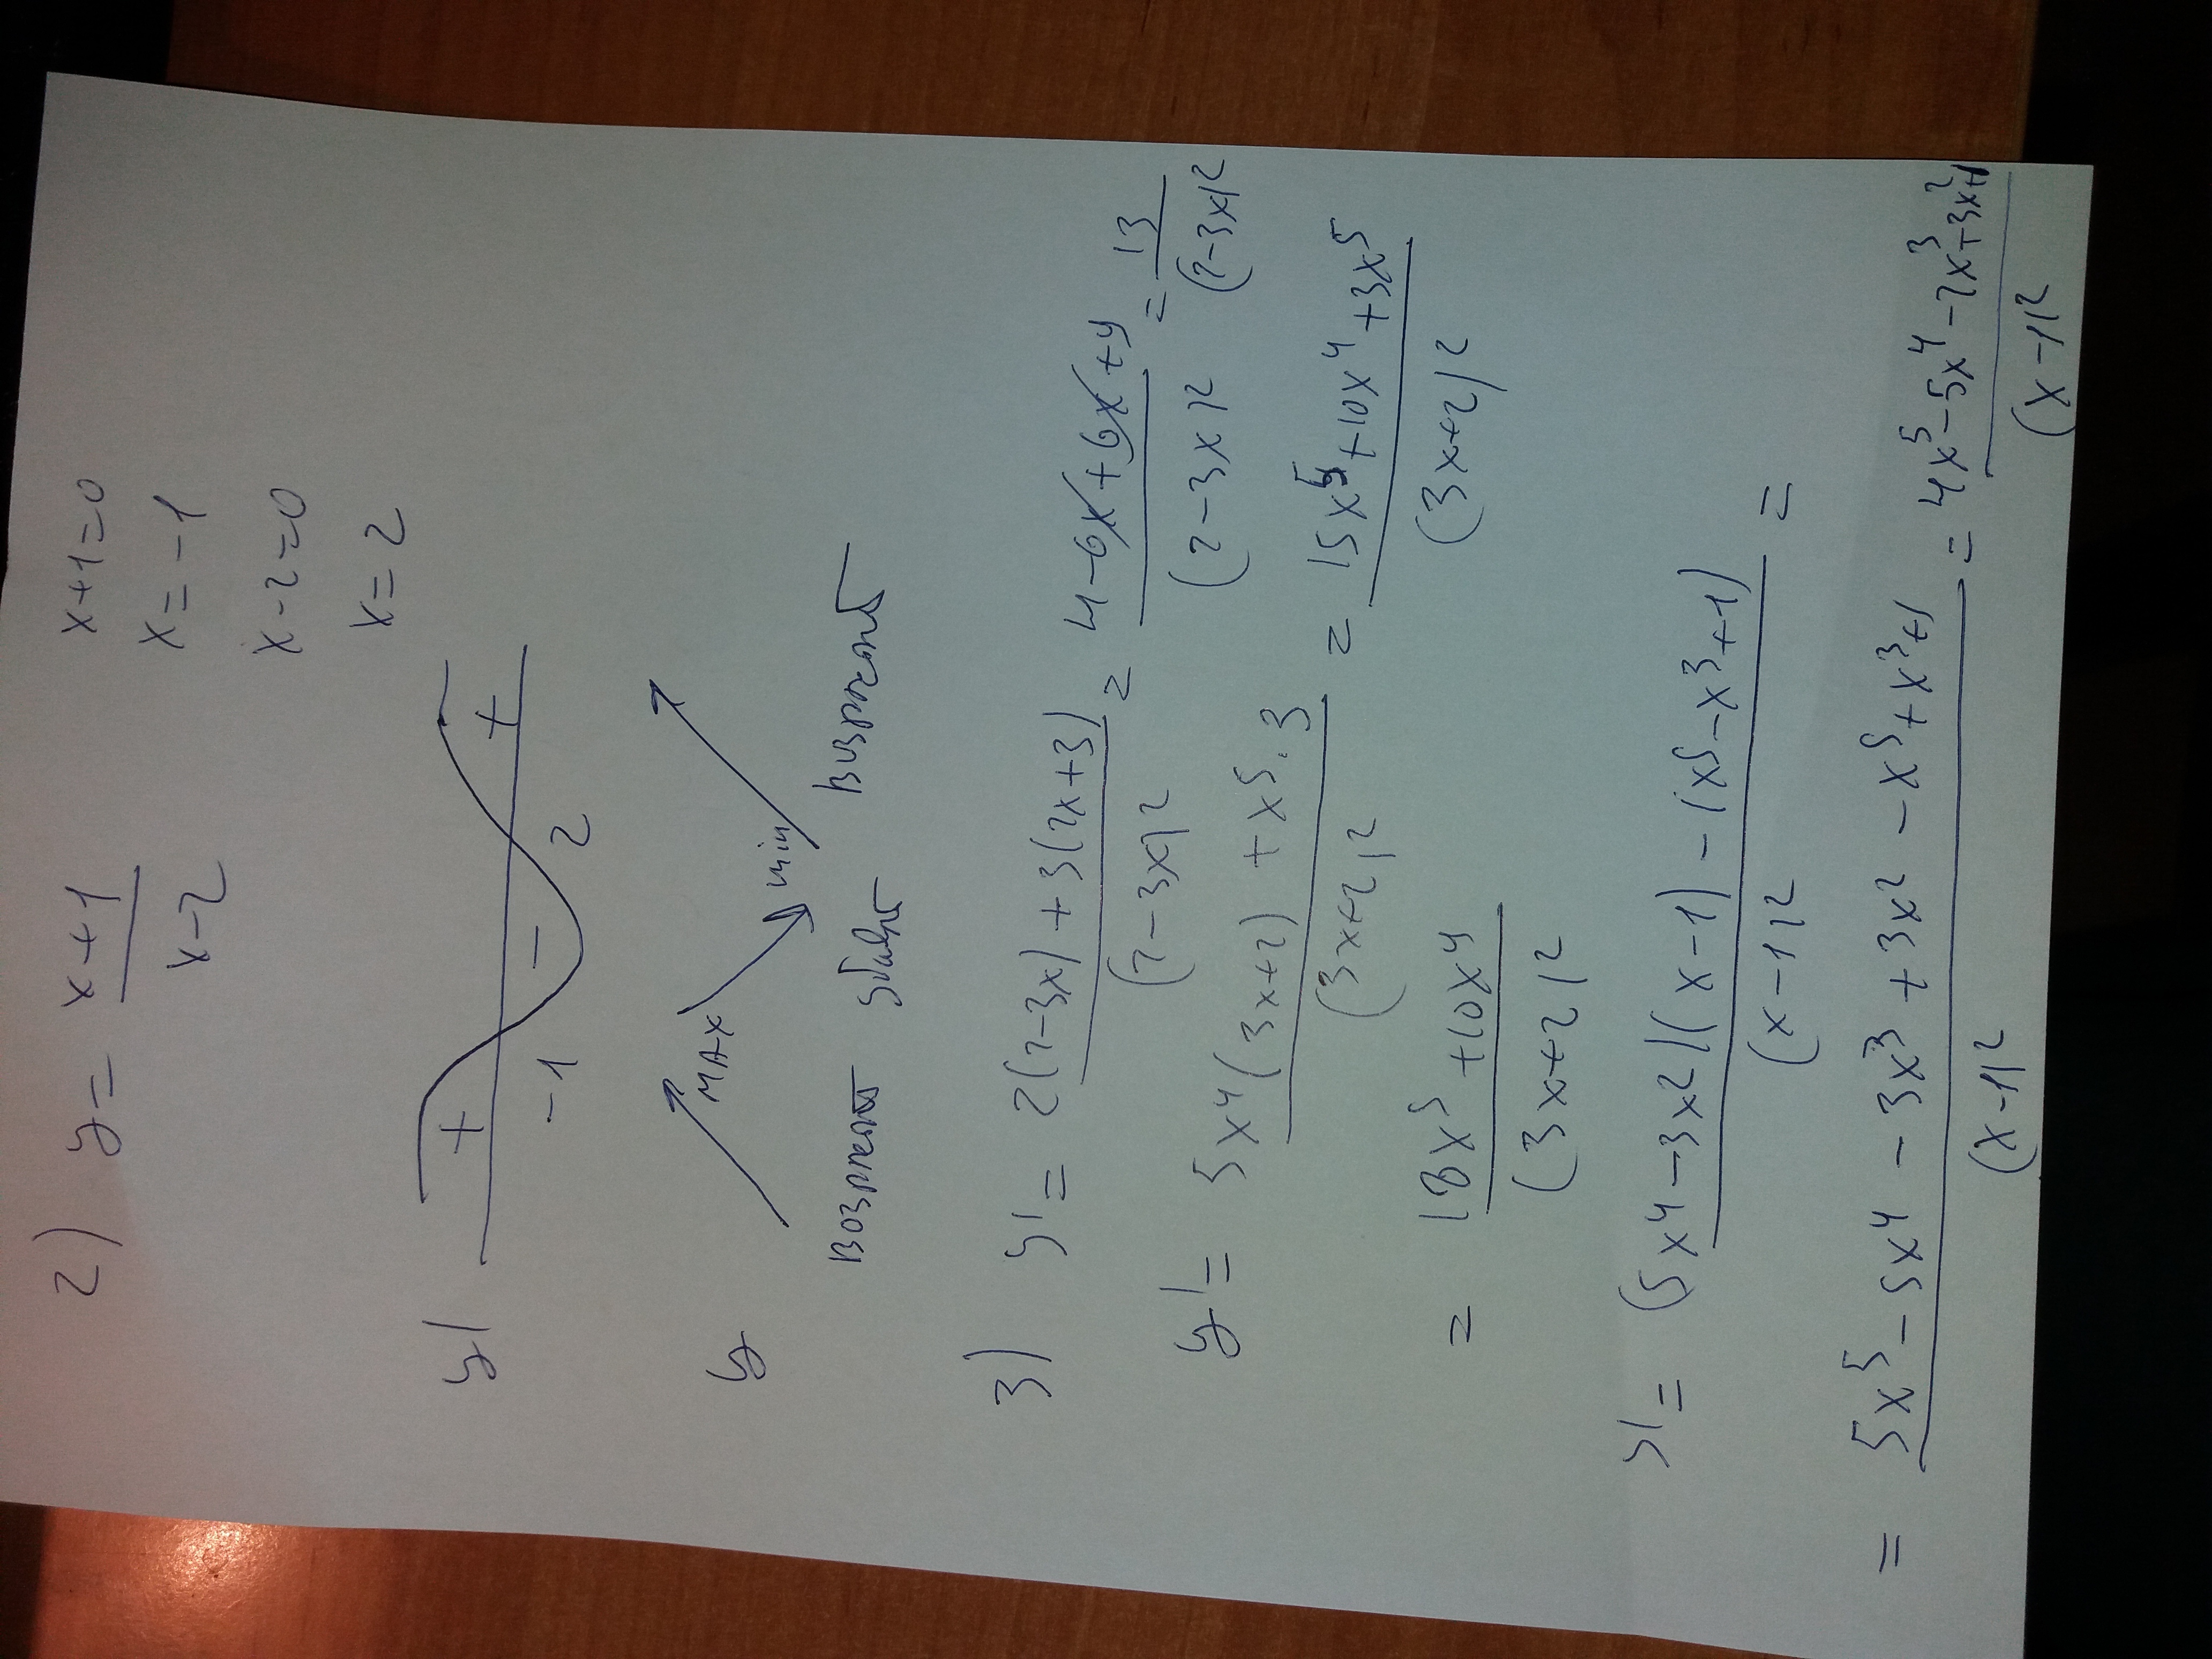 2) y = x+1 / x-2    x+1=0
x = -1
x-2=0
x=2
y' + - +
-1 2
y MAX min
возрастает убывает возрастает
3) y' = 2(2-3x) + 3(2x+3) / (2-3x)² = 4-6x+6x+9 / (2-3x)² = 13 / (2-3x)²
y' = 5x⁴(3x+2) + x⁵·3 / (3x+2)² = 15x⁵+10x⁴+3x⁵ / (3x+2)²
= 18x⁵+10x⁴ / (3x+2)²
y' = (5x⁴-3x²)(x-1) - (x⁵-x³+1) / (x-1)² =
= 5x⁵-5x⁴-3x³+3x²-x⁵+x³+1 / (x-1)² = 4x⁵-5x⁴-2x³+3x²+1 / (x-1)²